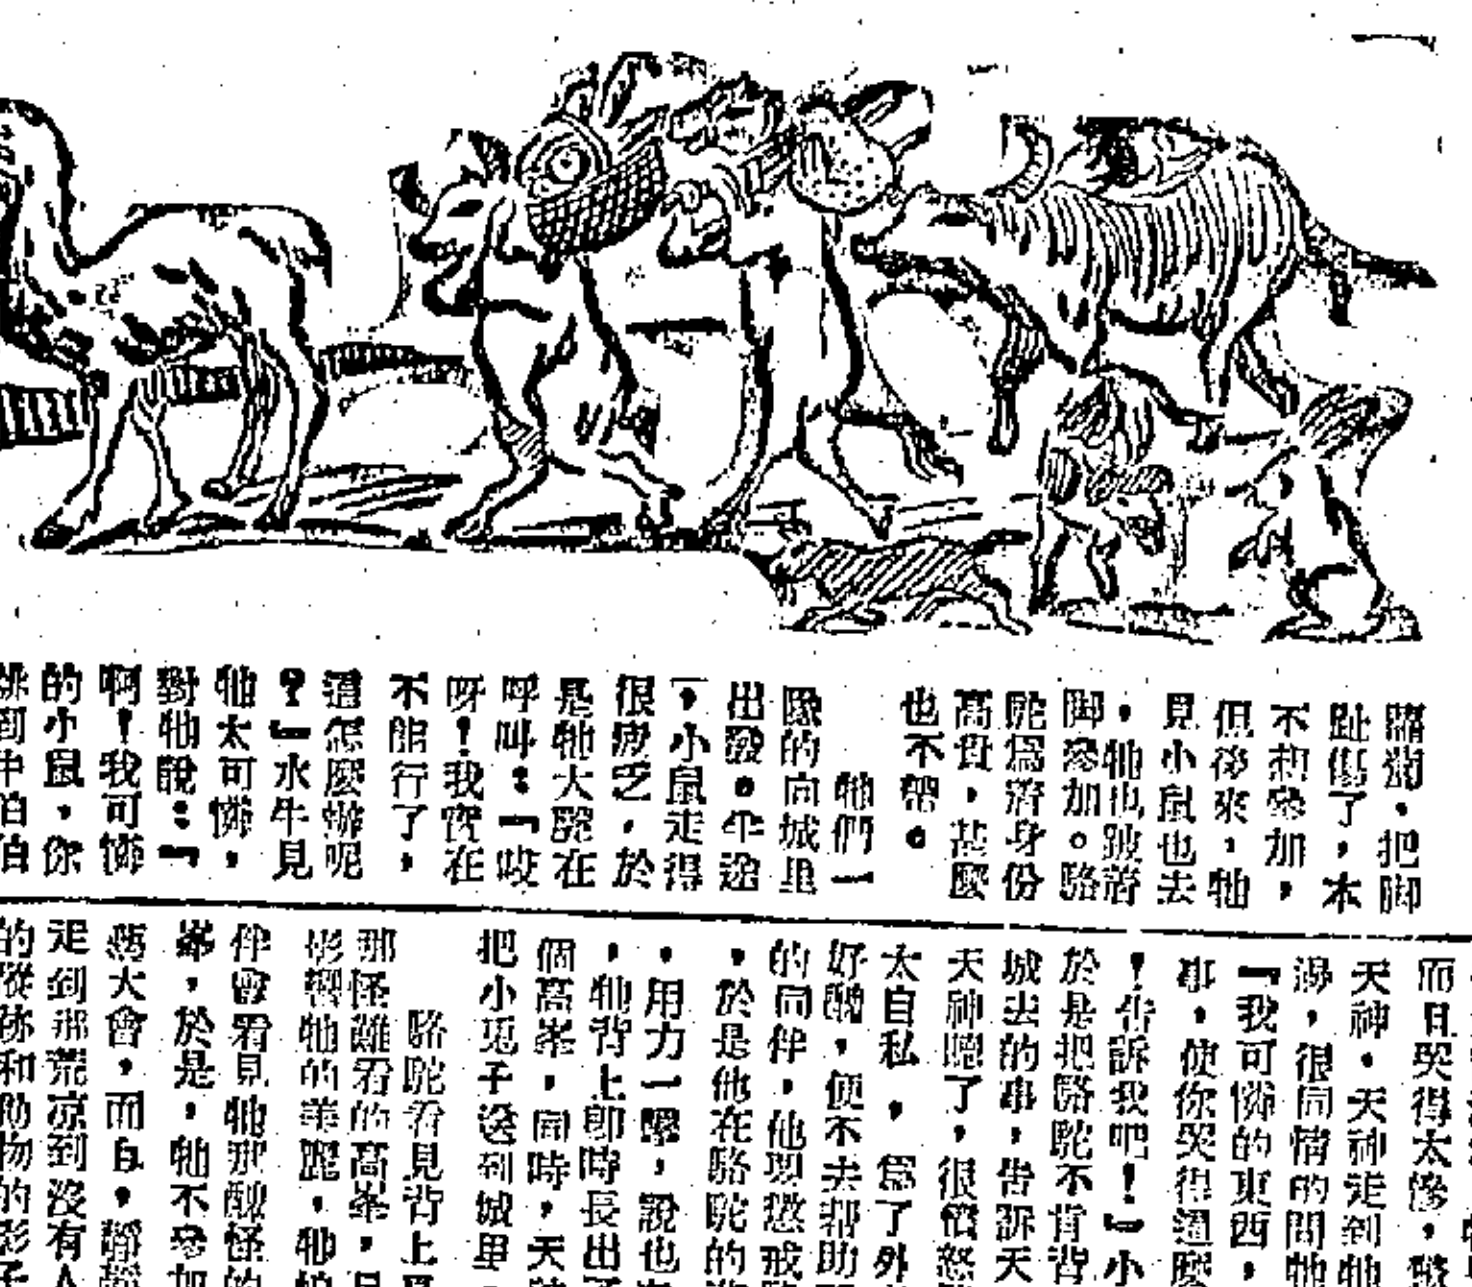 把脚
趾傷了，本
不想參加，
但後來，牠
見小鼠也去
，牠也跛着
脚參加。駱
駝爲着身份
高貴，甚麼
也不帶。
牠們一
隊的向城里
出發。半途
，小鼠走得
很疲乏，於
是牠大聲在
呼叫：『哎
呀！我實在
不能行了，
這怎麼辦呢
？』水牛見
牠太可憐，
對牠說：『
啊！我可憐
的小鼠，你
跳到牛伯伯
而且哭得太慘，驚
天神。天神走到牠
湯，很同情的問牠
『我可憐的東西，
事，使你哭得這麼
！告訴我吧！』小
於是把駱駝不肯背
城去的事，告訴天
天神聽了，很憤怒
太自私，爲了外
好醜，便不去幇助
的同伴，他要懲戒
，於是他在駱駝的
，用力一擊，說也
，牠背上即時長出
個高峯，同時，天
把小兎子送到城里。
駱駝看見背上
那怪難看的高峯，
影響牠的美麗，牠怕
伴會看見牠那醜怪的
峯，於是，牠不參加
舞大會，而自，靜靜
走到那荒凉到沒有人
的從你和動物的影子